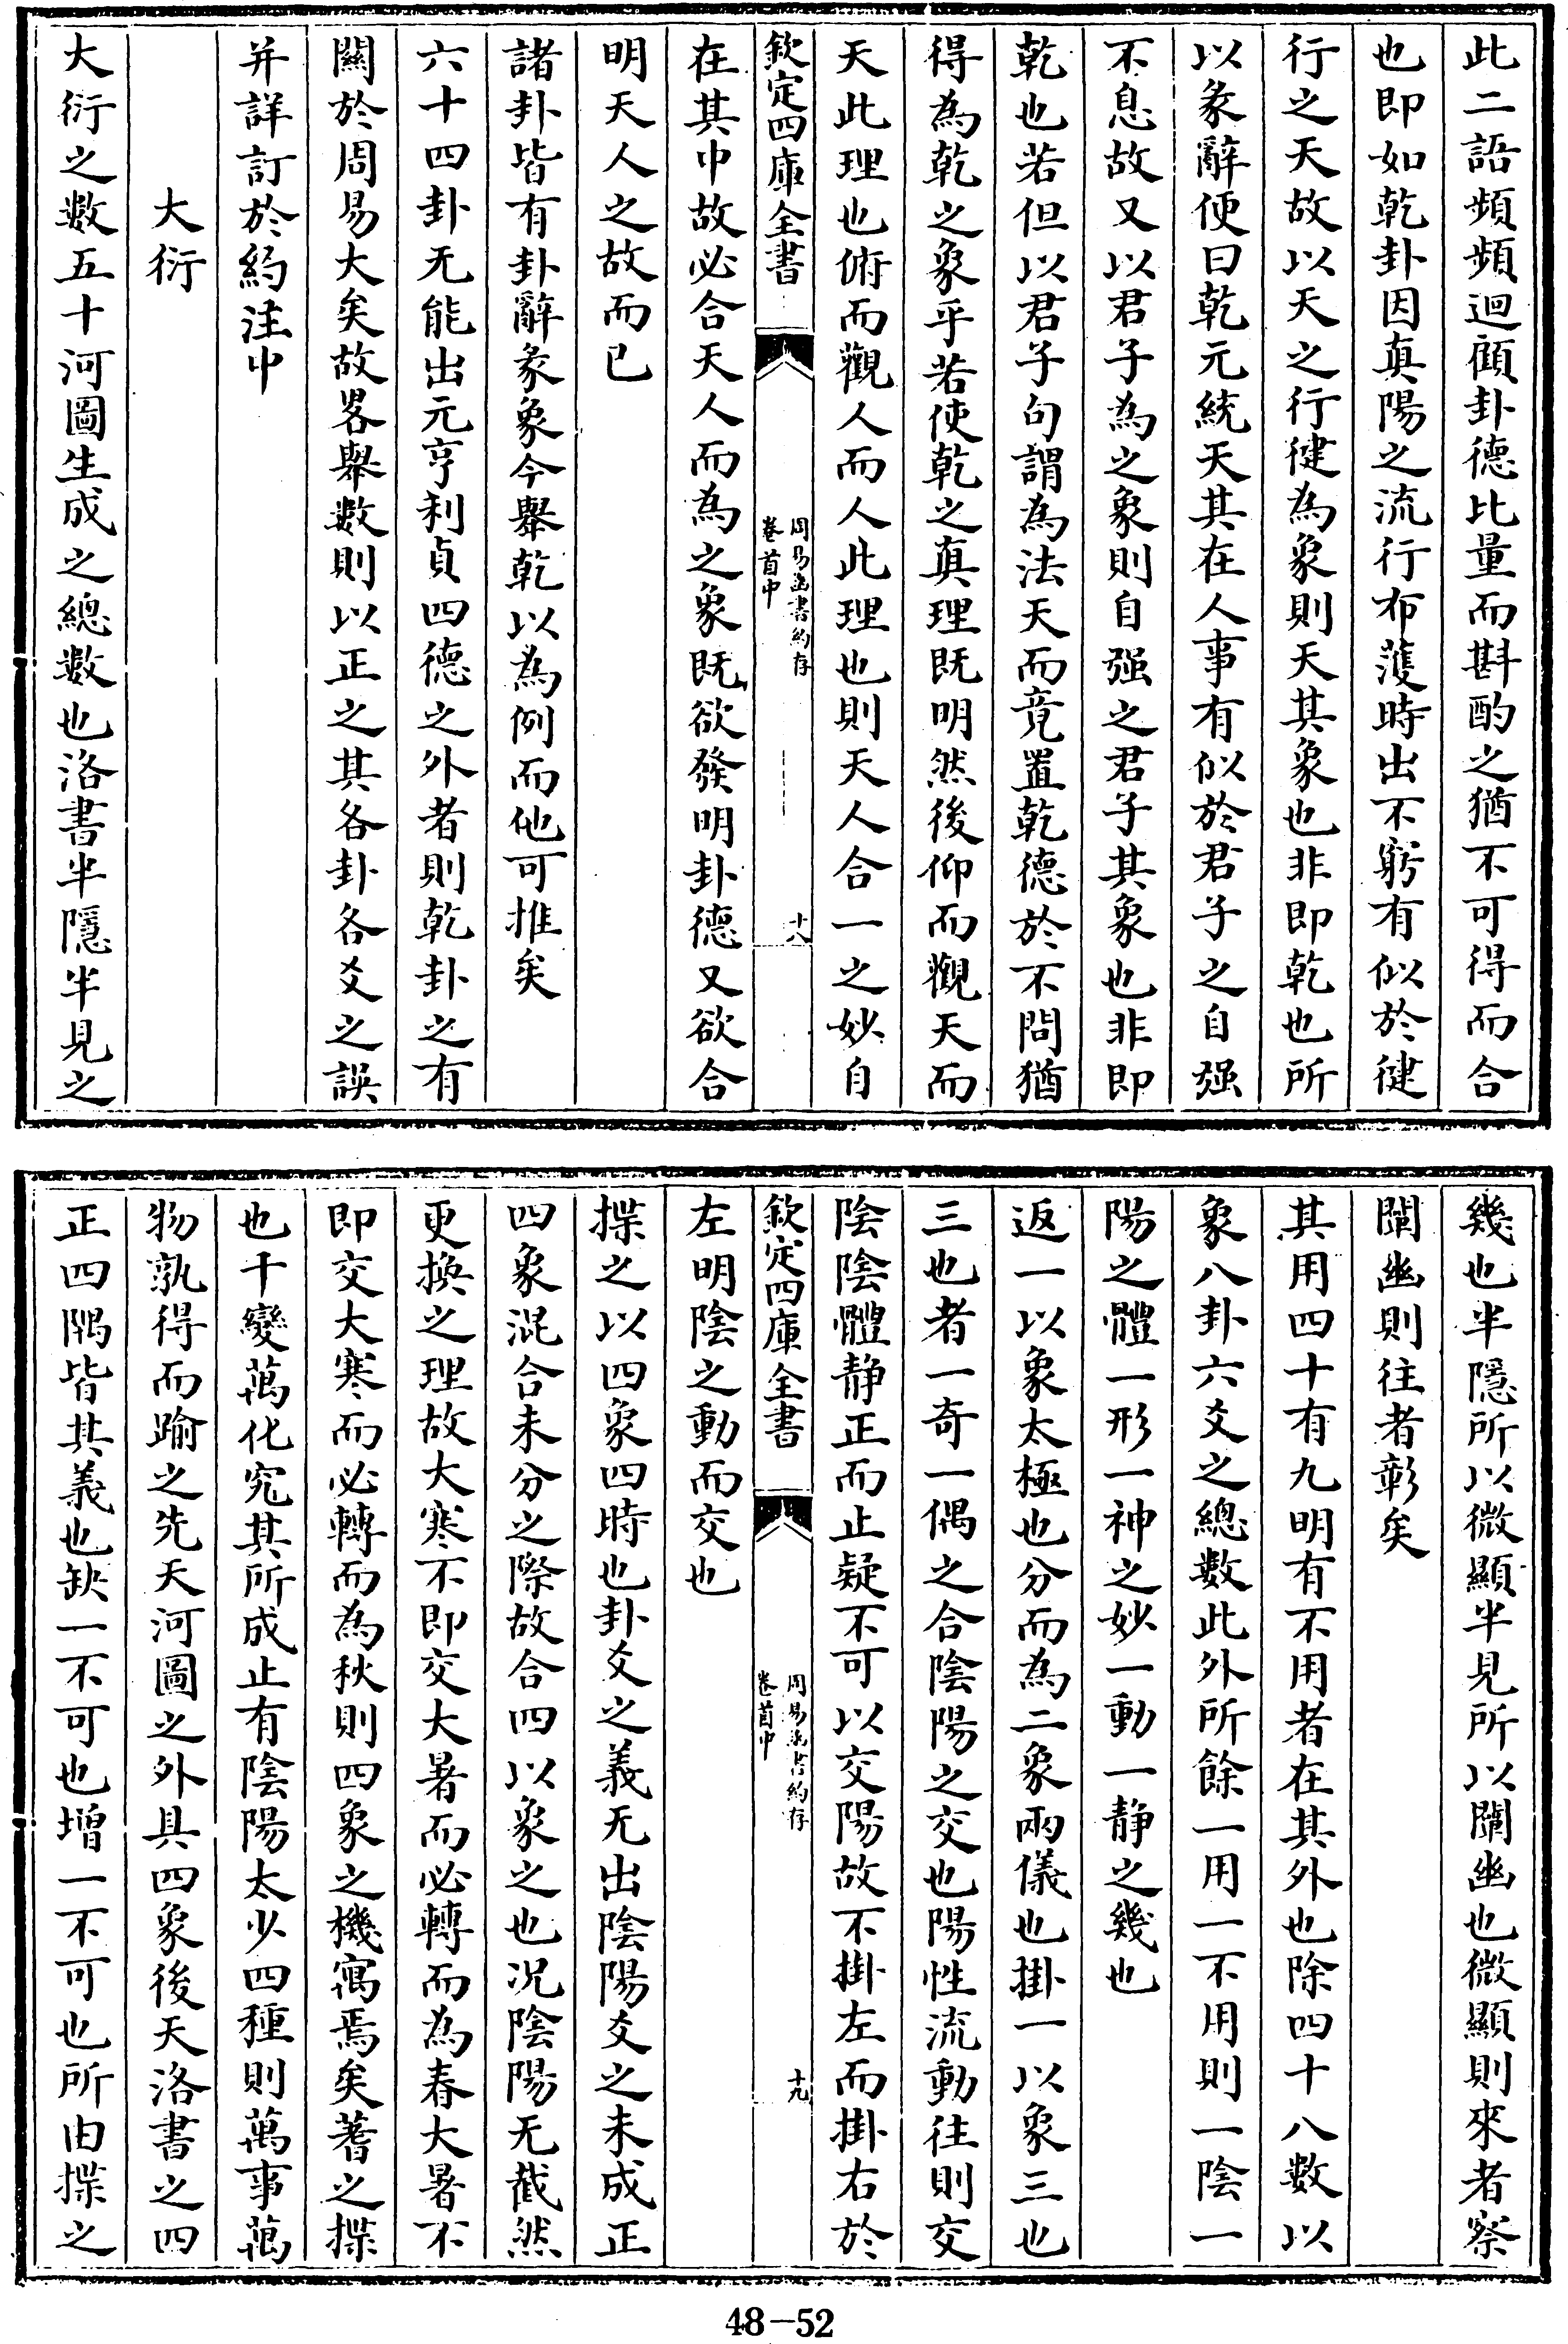 此二語頻頻迴顧卦德比量而斟酌之猶不可得而合
也即如乾卦因真陽之流行布濩時出不窮有似於健
行之天故以天之行健為象則天其象也非即乾也所
以彖辭便曰乾元統天其在人事有似於君子之自强
不息故又以君子為之象則自强之君子其象也非即
乾也若但以君子句謂為法天而竟置乾德於不問猶
得為乾之象乎若使乾之真理既明然後仰而觀天而
天此理也俯而觀人而人此理也則天人合一之妙自
欽定四庫全書
周易函書約存
卷首中
十八
在其中故必合天人而為之象既欲發明卦德又欲合
明天人之故而已
諸卦皆有卦辭彖象今舉乾以為例而他可推矣
六十四卦无能出元亨利貞四德之外者則乾卦之有
關於周易大矣故畧舉數則以正之其各卦各爻之誤
并詳訂於約注中
大衍
大衍之數五十河圖生成之總數也洛書半隱半見之
幾也半隱所以微顯半見所以闡幽也微顯則來者察
闡幽則往者彰矣
其用四十有九明有不用者在其外也除四十八數以
象八卦六爻之總數此外所餘一用一不用則一陰一
陽之體一形一神之妙一動一静之幾也
返一以象太極也分而為二象兩儀也掛一以象三也
三也者一奇一偶之合陰陽之交也陽性流動往則交
陰陰體静正而止疑不可以交陽故不掛左而掛右於
欽定四庫全書
周易函書約存
卷首中
十九
左明陰之動而交也
揲之以四象四時也卦爻之義无出陰陽爻之未成正
四象混合未分之際故合四以象之也况陰陽无截然
更換之理故大寒不即交大暑而必轉而為春大暑不
即交大寒而必轉而為秋則四象之機寓焉矣蓍之揲
也千變萬化究其所成止有陰陽太少四種則萬事萬
物孰得而踰之先天河圖之外具四象後天洛書之四
正四隅皆其義也缺一不可也增一不可也所由揲之
48-52